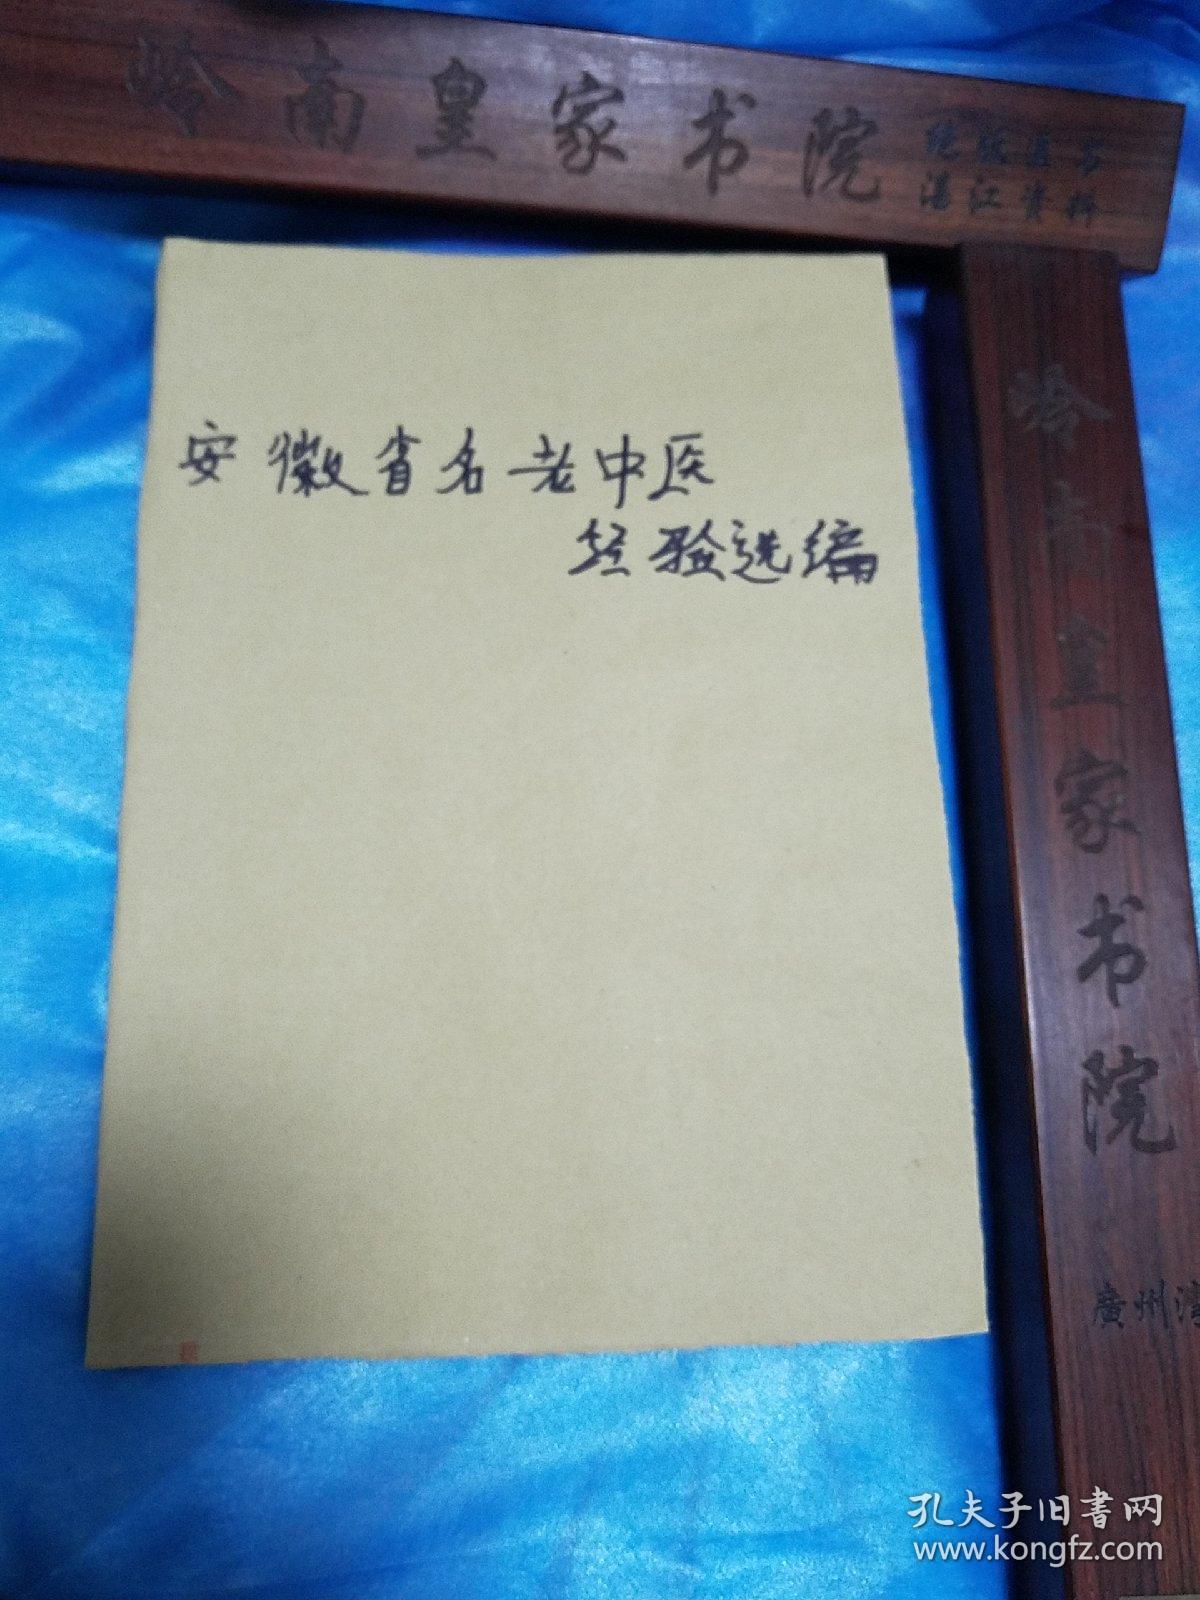 岭南皇家书院
绝版医书
湛江资料
安徽省名老中医
经验选编
岭南皇家书院
廣州湾
孔夫子旧书网
www.kongfz.com